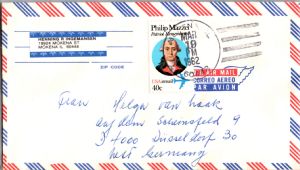 HENNING R INGEMANSEN
19924 MOKENA ST
MOKENA IL 60448
ZIP CODE
Philip Mazzei
Patriot Remembered
USAirmail
40c
MAR
PM
1982
AIR MAIL
CORREO AEREO
PAR AVION
Frau Helga van Haak
Auf dem Schensfeld 9
D 4000 Düsseldorf 30
West Germany